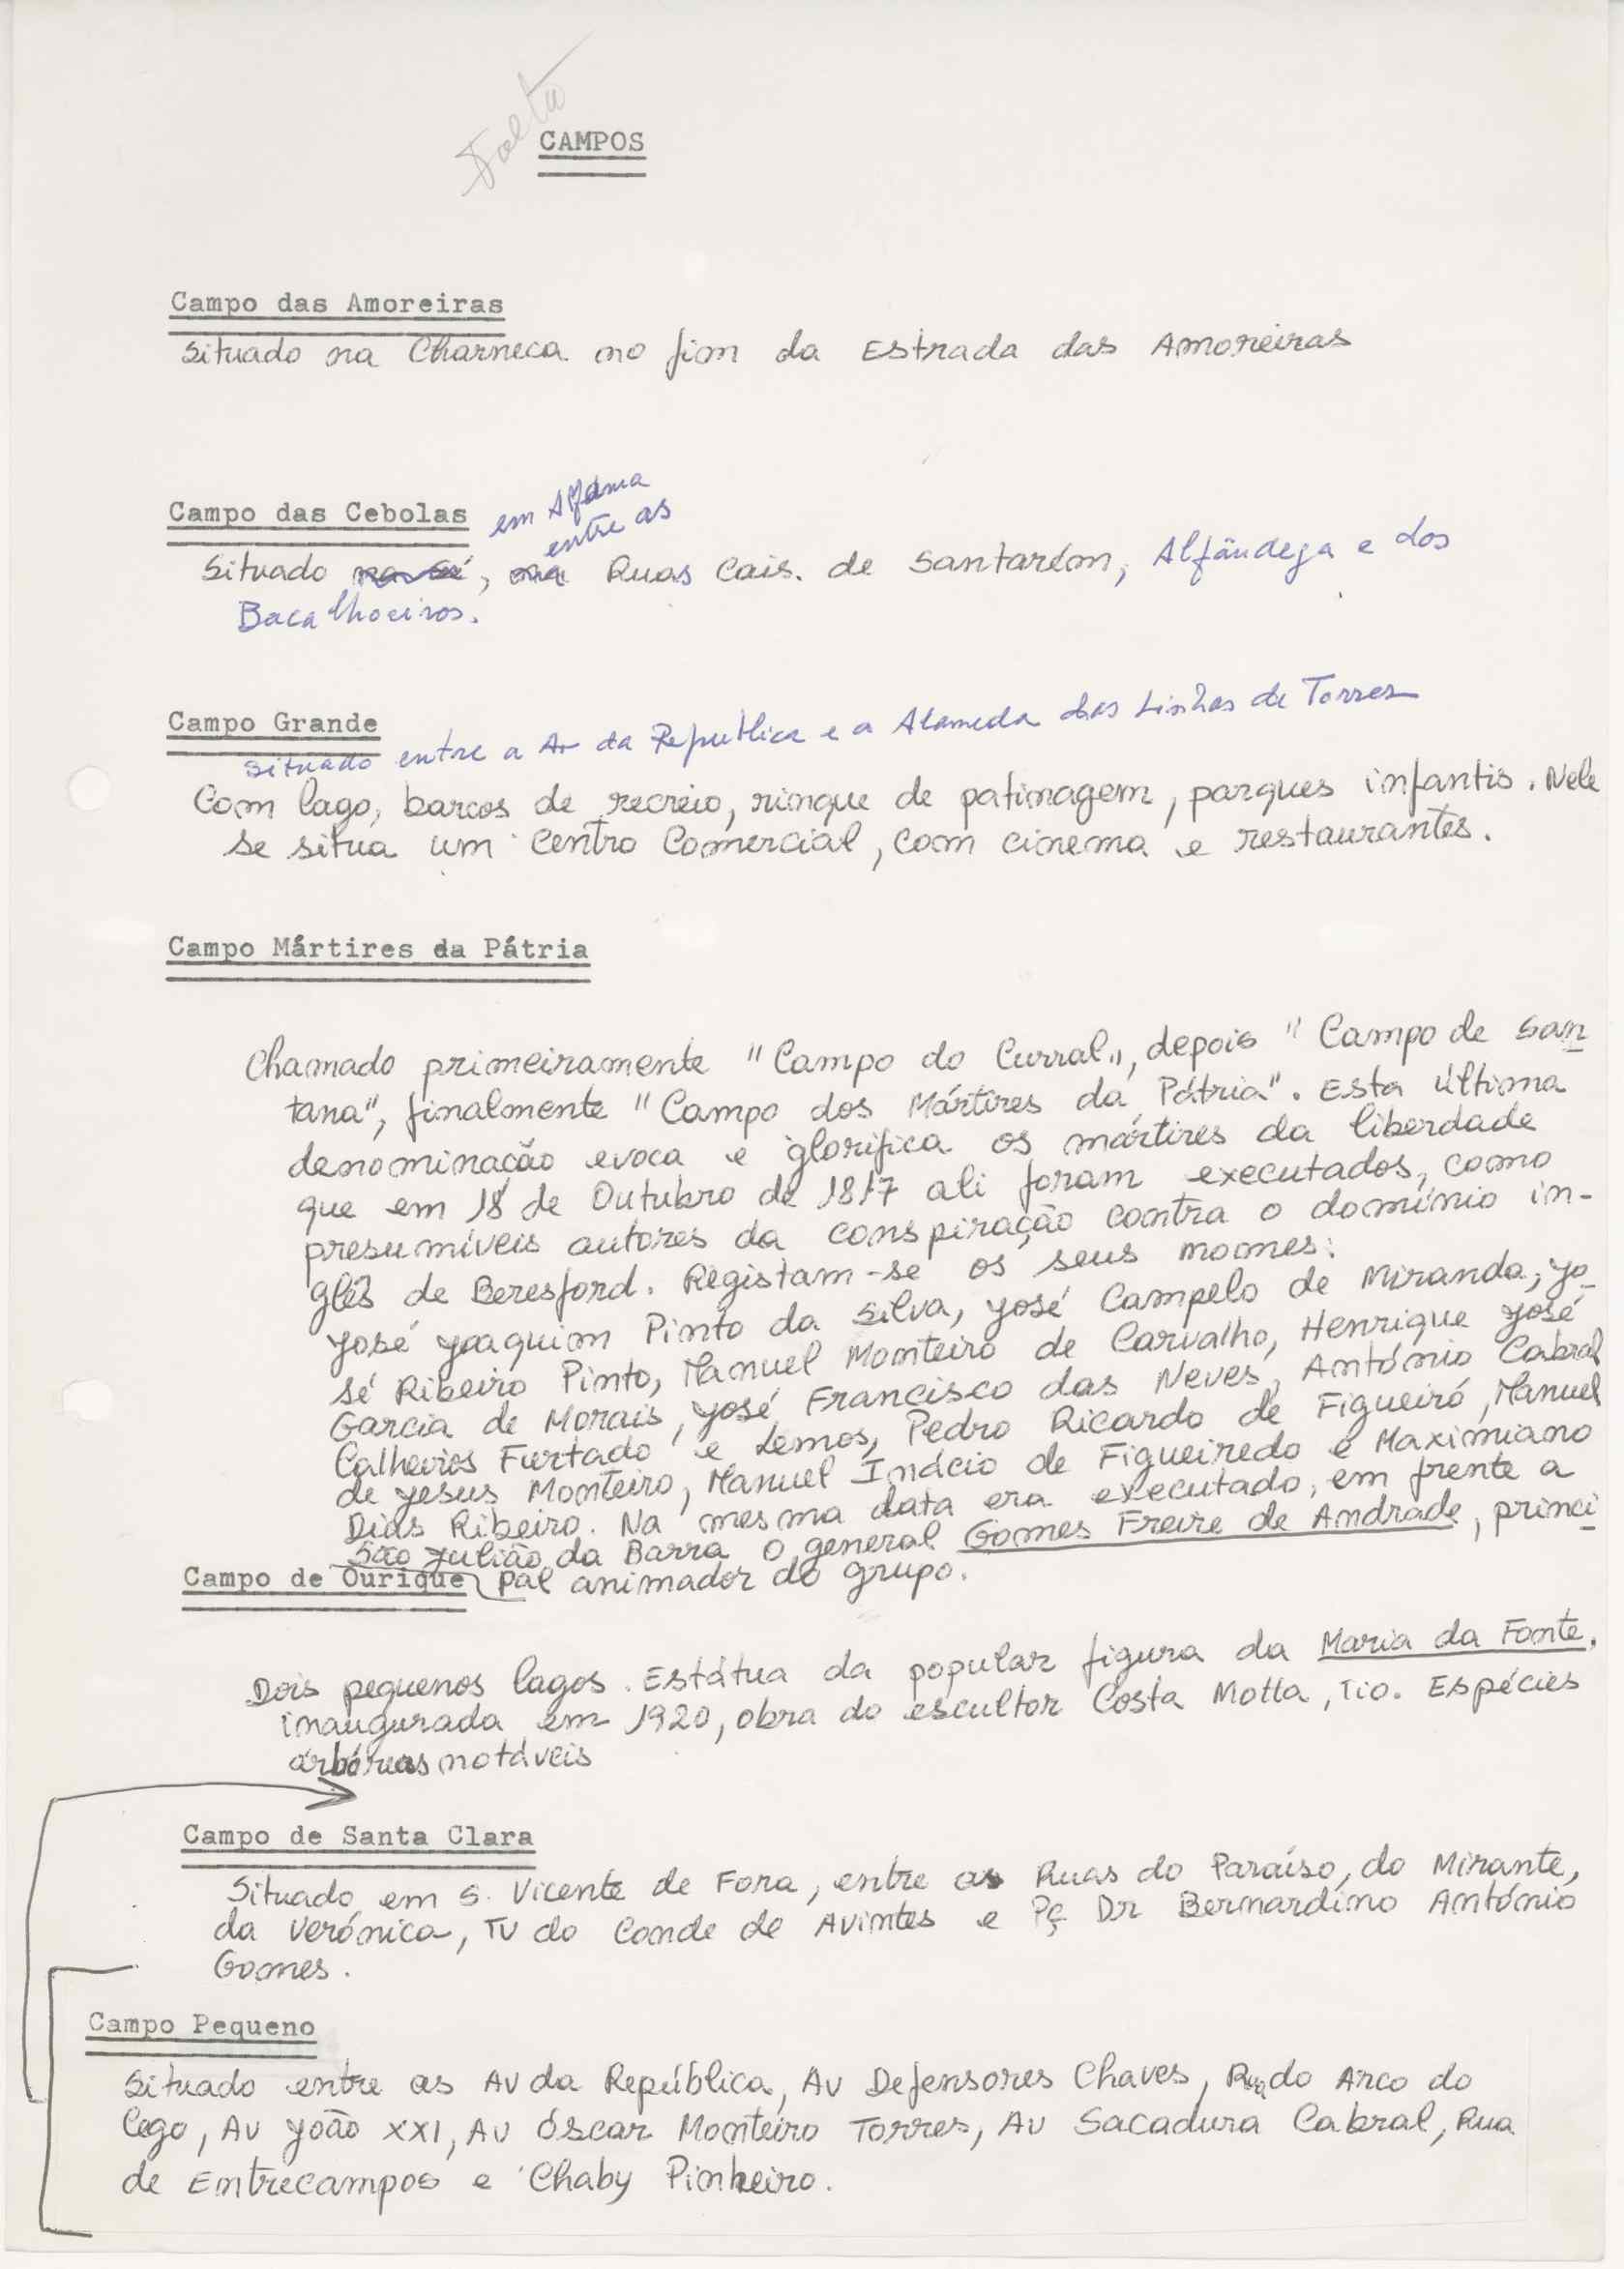 Falta
CAMPOS
Campo das Amoreiras
Situado na Charneca no fim da Estrada das Amoreiras
Campo das Cebolas em Alfama
entre as
Situado na Sé, na Ruas Cais. de Santarém, Alfândega e dos
Bacalhoeiros.
Campo Grande
situado entre a Av da República e a Alameda das Linhas de Torres
Com lago, barcos de recreio, rinque de patinagem, parques infantis. Nele
se situa um Centro Comercial, com cinema e restaurantes.
Campo Mártires da Pátria
Chamado primeiramente "Campo do Curral", depois "Campo de San
tana", finalmente "Campo dos Mártires da Pátria". Esta última
denominação evoca e glorifica os mártires da liberdade
que em 18 de Outubro de 1817 ali foram executados, como
presumíveis autores da conspiração contra o domínio in-
glês de Beresford. Registam-se os seus nomes:
José Joaquim Pinto da Silva, José Campelo de Miranda, Jo
sé Ribeiro Pinto, Manuel Monteiro de Carvalho, Henrique José
Garcia de Morais, José Francisco das Neves, António Cabral
Calheiros Furtado e Lemos, Pedro Ricardo de Figueiró, Manuel
de Jesus Monteiro, Manuel Inácio de Figueiredo e Maximiano
Dias Ribeiro. Na mesma data era executado, em frente a
São Julião da Barra o general Gomes Freire de Andrade, princi
pal animador do grupo.
Campo de Ourique
Dois pequenos lagos. Estátua da popular figura da Maria da Fonte.
inaugurada em 1920, obra do escultor Costa Motta, Tio. Espécies
arbóreas notáveis
Campo de Santa Clara
Situado em S. Vicente de Fora, entre as Ruas do Paraíso, do Mirante,
da Verónica, TV do Conde de Avintes e Pç Dr Bernardino António
Gomes.
Campo Pequeno
Situado entre as Av da República, Av Defensores Chaves, Rua do Arco do
Cego, Av João XXI, Av Óscar Monteiro Torres, Av Sacadura Cabral, Rua
de Entrecampos e Chaby Pinheiro.